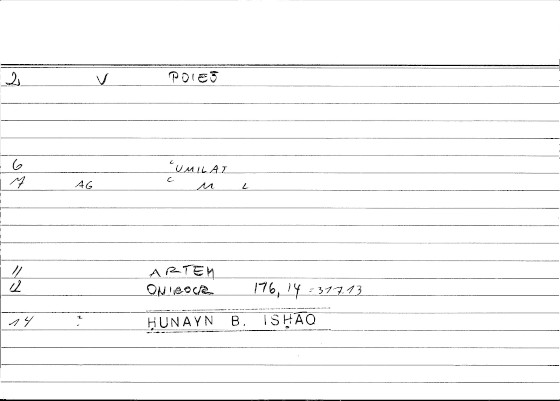 2, V POIEŌ
6 ʿUMILAT
7 AG ʿ M L
11 ARTEM
12 ONIROCR 176, 14 = 317.13
14 : ḤUNAYN B. ISḤĀQ